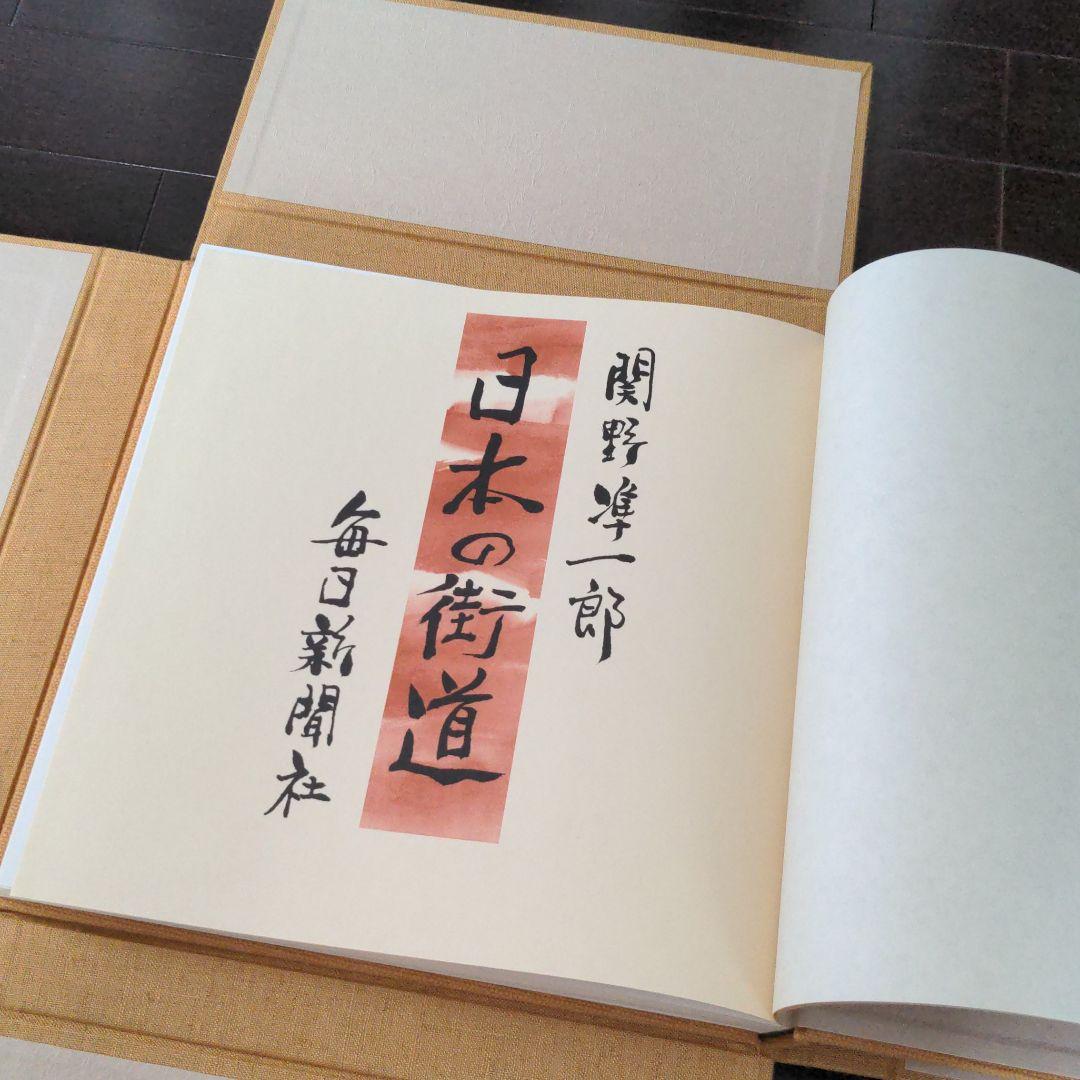 関野凖一郎
日本の街道
毎日新聞社